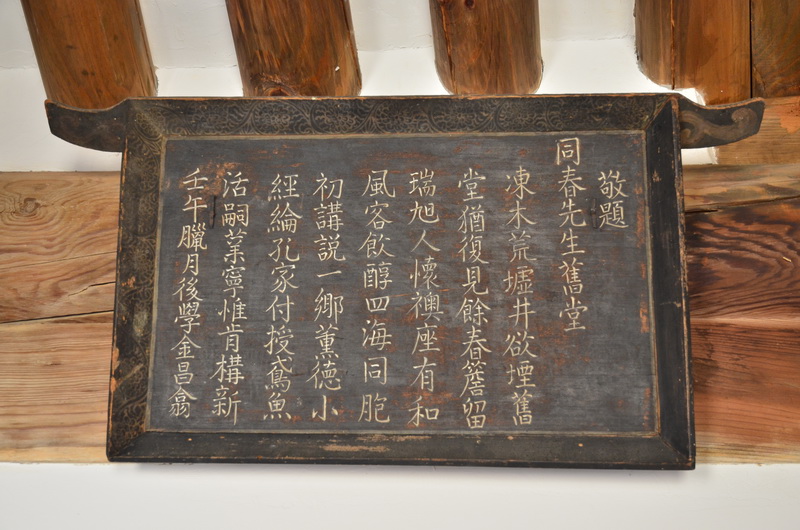 敬題
同春先生舊堂
凍木荒墟井欲堙舊
堂猶復見餘春簷留
瑞旭人懷襖座有和
風客飮醇四海同胞
初講説一鄉薰德小
經綸孔家付授鳶魚
活嗣葉寧惟肯構新
壬午臘月後學金昌翕